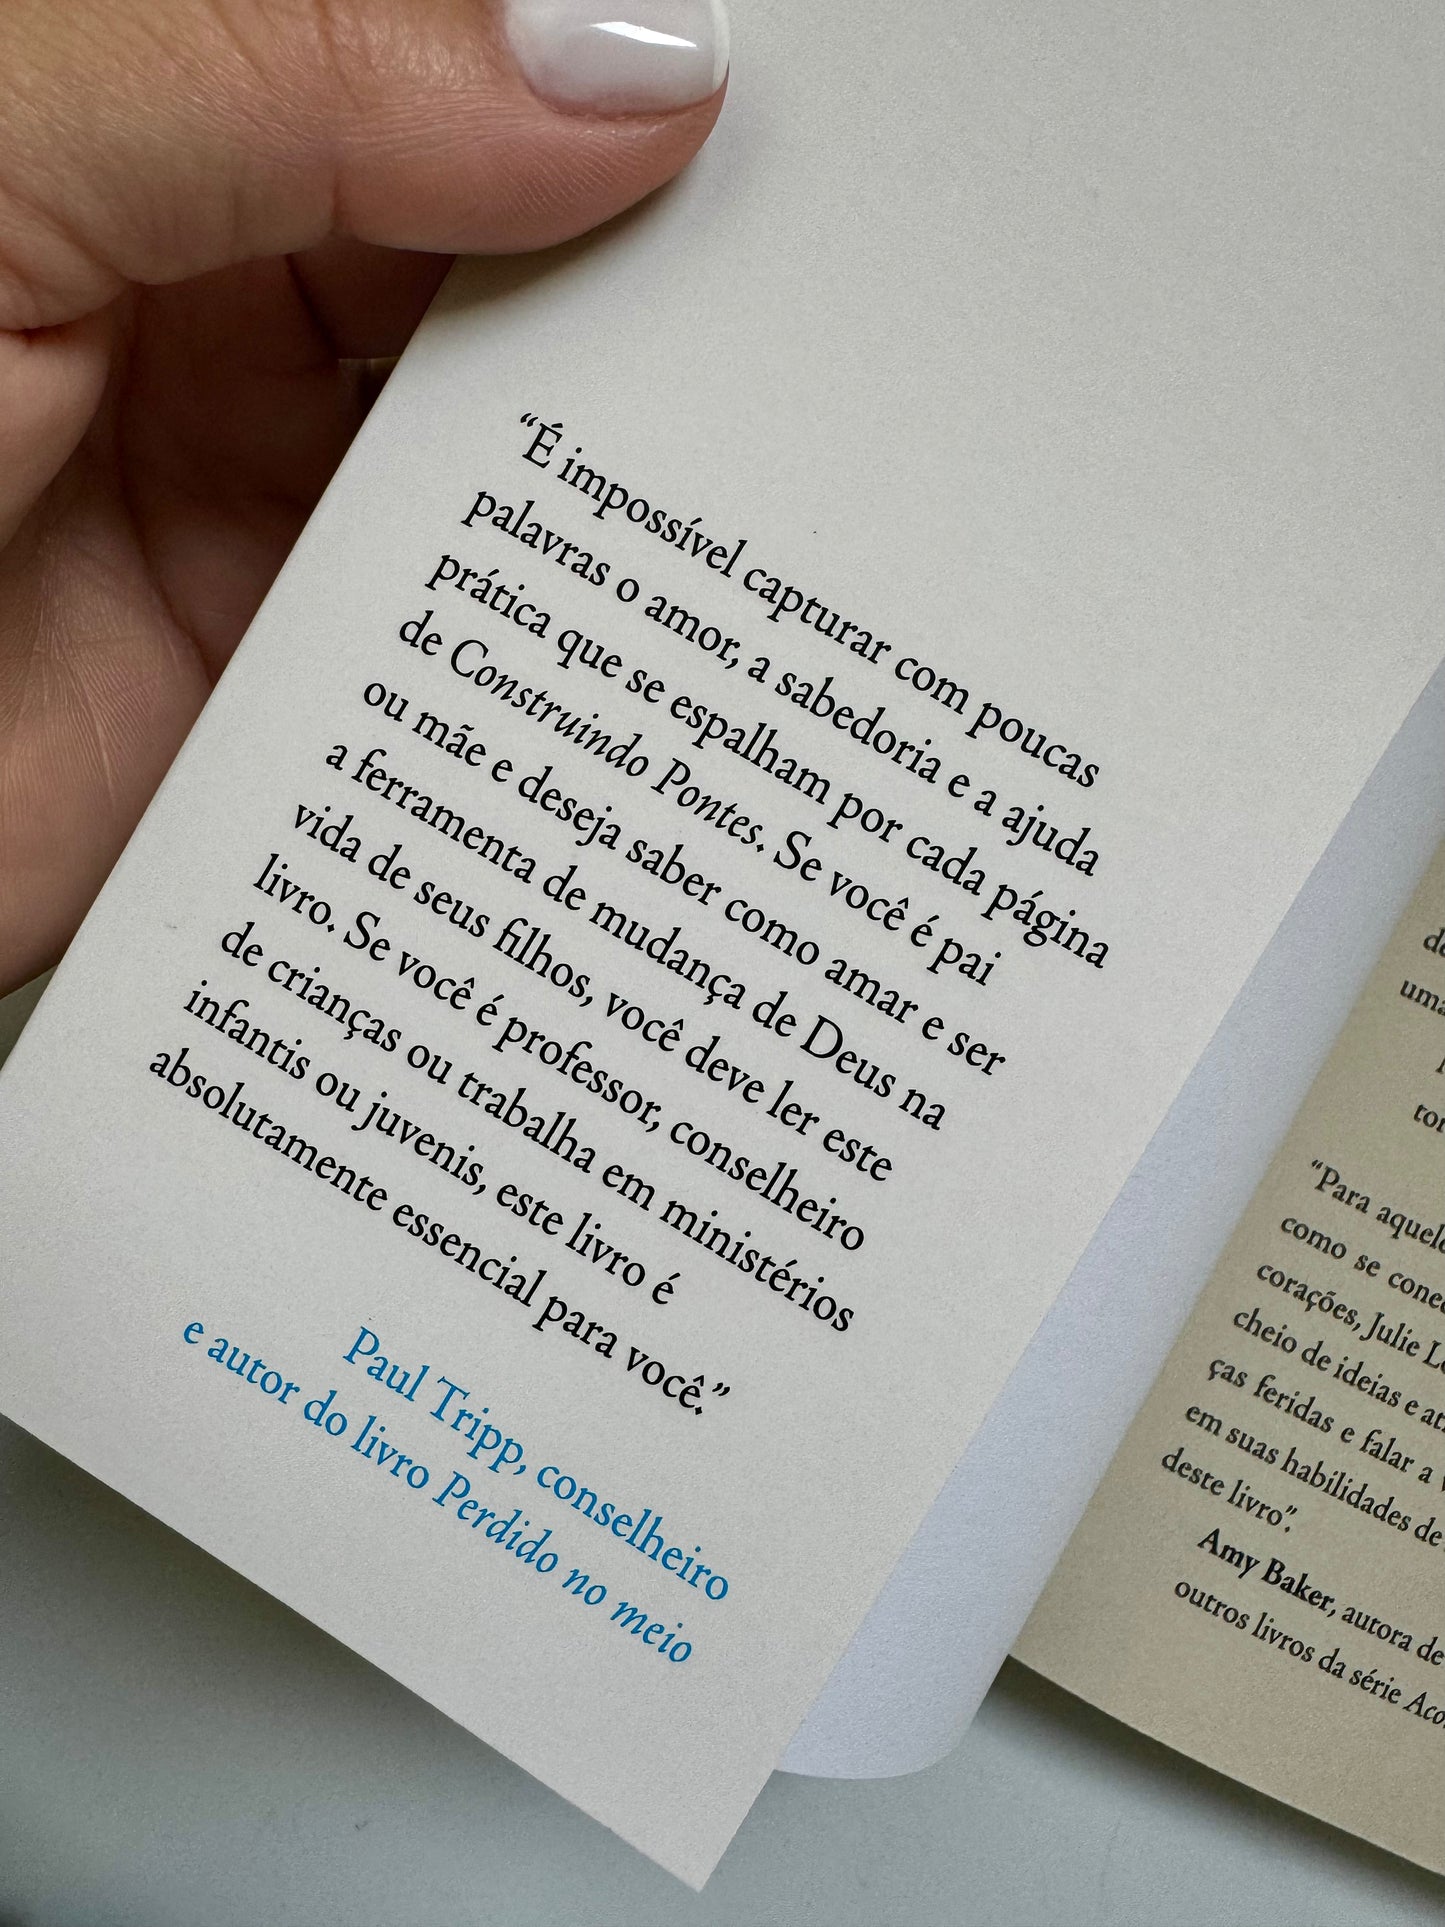 “É impossível capturar com poucas
palavras o amor, a sabedoria e a ajuda
prática que se espalham por cada página
de Construindo Pontes. Se você é pai
ou mãe e deseja saber como amar e ser
a ferramenta de mudança de Deus na
vida de seus filhos, você deve ler este
livro. Se você é professor, conselheiro
de crianças ou trabalha em ministérios
infantis ou juvenis, este livro é
absolutamente essencial para você.”
Paul Tripp, conselheiro
e autor do livro Perdido no meio
“Para
como se
corações, Julie
cheio de ideias e
ças feridas e falar a
em suas habilidades de
deste livro”.
Amy Baker, autora de
outros livros da série